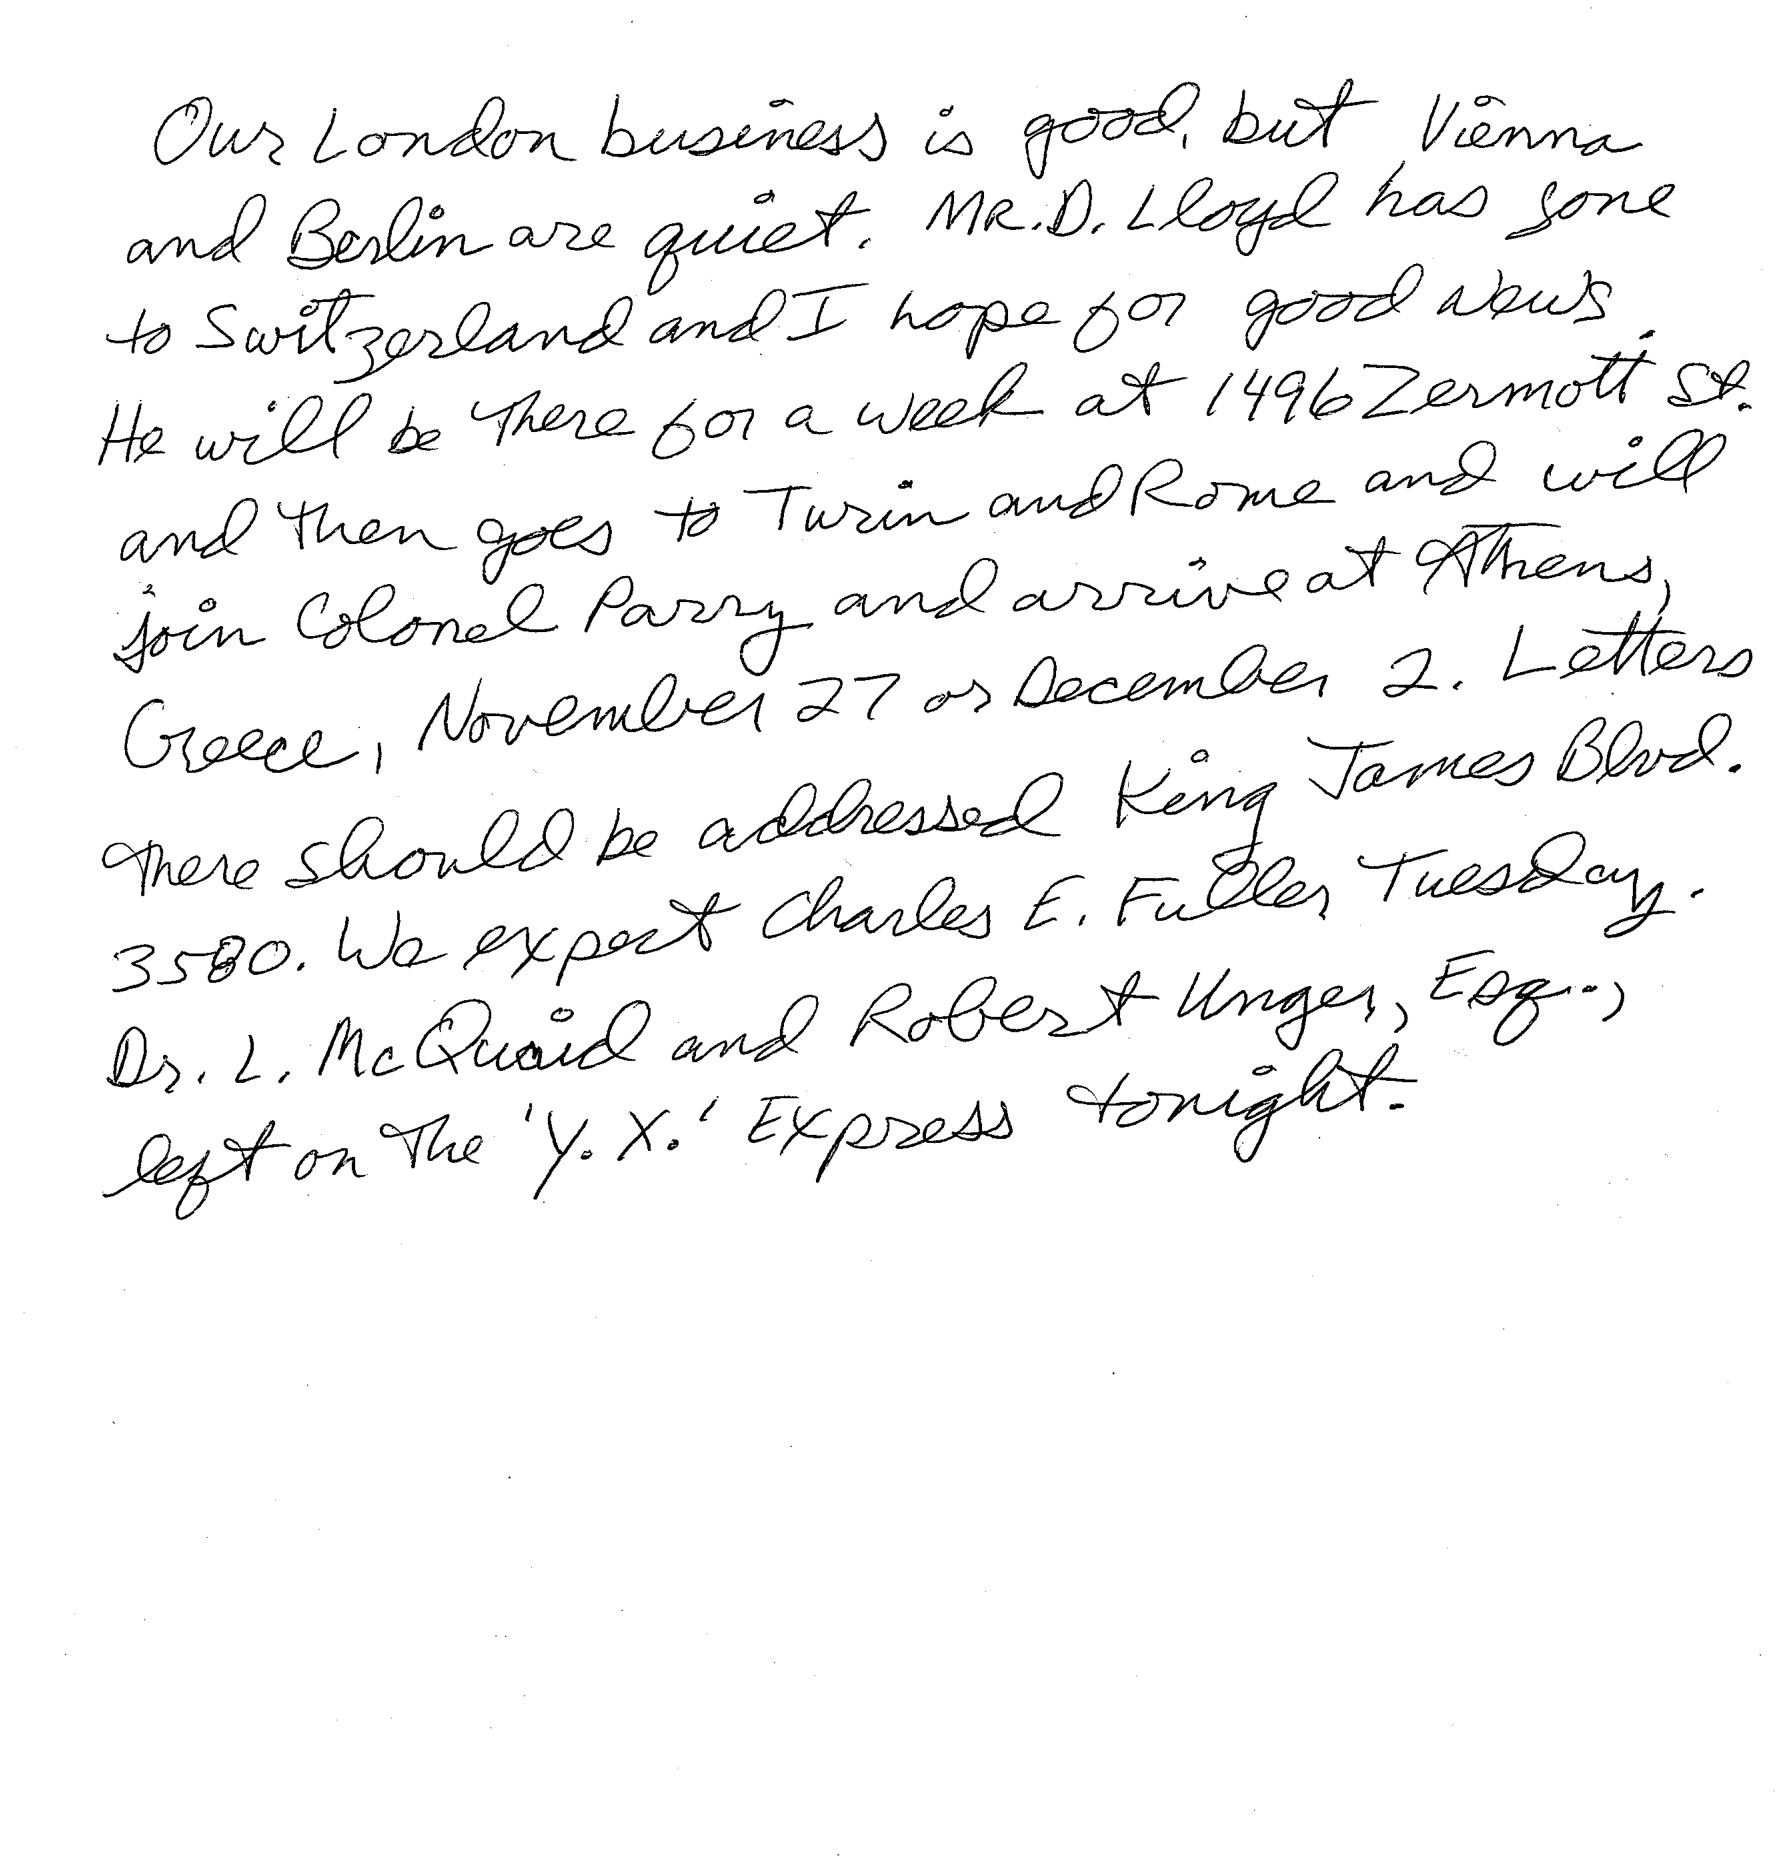 Our London business is good, but Vienna
and Berlin are quiet. Mr. D. Lloyd has gone
to Switzerland and I hope for good news.
He will be there for a week at 1496 Zermott St.
and then goes to Turin and Rome and will
join Colonel Parry and arrive at Athens,
Greece, November 27 or December 2. Letters
there should be addressed King James Blvd.
3580. We expect Charles E. Fuller Tuesday.
Dr. L. McQuaid and Robert Unger, Esq.,
left on the 'Y. X.' Express tonight.